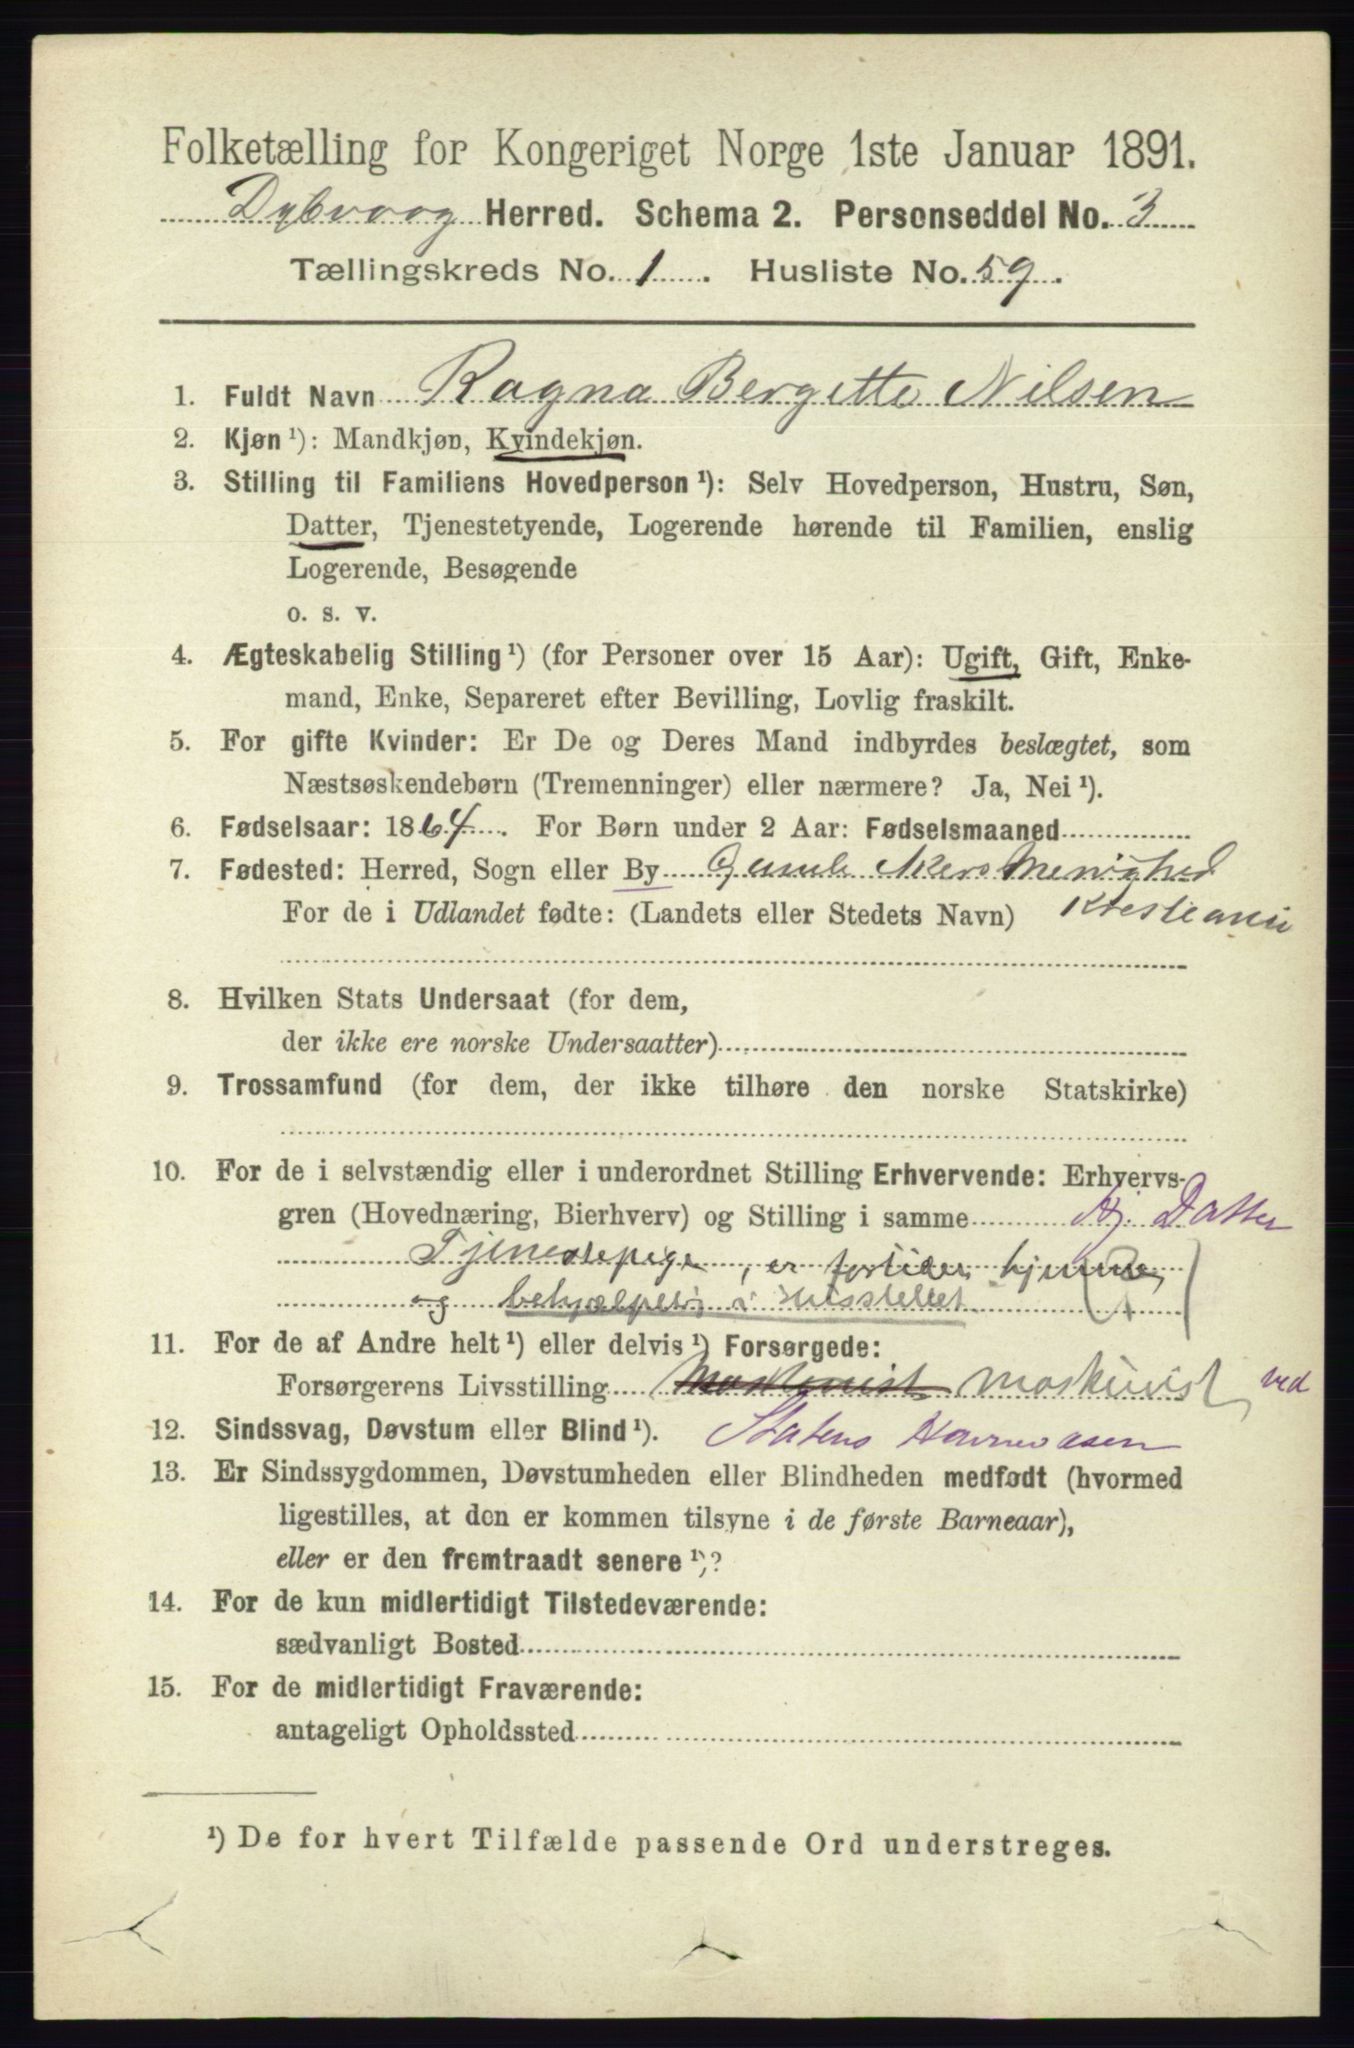 Folketælling for Kongeriget Norge 1ste Januar 1891.
Dybvaag Herred. Schema 2. Personseddel No. 3
Tællingskreds No. 1. Husliste No. 59.
1. Fuldt Navn Ragna Bergitte Nilsen
2. Kjøn ¹): Mandkjøn, Kvindekjøn.
3. Stilling til Familiens Hovedperson ¹): Selv Hovedperson, Hustru, Søn,
Datter, Tjenestetyende, Logerende hørende til Familien, enslig
Logerende, Besøgende
o. s. v.
4. Ægteskabelig Stilling ¹) (for Personer over 15 Aar): Ugift, Gift, Enke-
mand, Enke, Separeret efter Bevilling, Lovlig fraskilt.
5. For gifte Kvinder: Er De og Deres Mand indbyrdes beslægtet, som
Næstsøskendebørn (Tremenninger) eller nærmere? Ja, Nei ¹).
6. Fødselsaar: 1864. For Børn under 2 Aar: Fødselsmaaned
7. Fødested: Herred, Sogn eller By Gamle Akers Menighed
For de i Udlandet fødte: (Landets eller Stedets Navn) Kristiania
8. Hvilken Stats Undersaat (for dem,
der ikke ere norske Undersaatter)
9. Trossamfund (for dem, der ikke tilhøre den norske Statskirke)
10. For de i selvstændig eller i underordnet Stilling Erhvervende: Erhvervs-
gren (Hovednæring, Bierhverv) og Stilling i samme Hj. Datter
Tjenestepige, er fortiden hjemme,
og behjælpelig i Husstellet
11. For de af Andre helt ¹) eller delvis ¹) Forsørgede:
Forsørgerens Livsstilling Maskinist Maskinist ved
12. Sindssvag, Døvstum eller Blind ¹). Statens Havnevæsen
13. Er Sindssygdommen, Døvstumheden eller Blindheden medfødt (hvormed
ligestilles, at den er kommen tilsyne i de første Barneaar),
eller er den fremtraadt senere ¹)?
14. For de kun midlertidigt Tilstedeværende:
sædvanligt Bosted
15. For de midlertidigt Fraværende:
antageligt Opholdssted
¹) De for hvert Tilfælde passende Ord understreges.